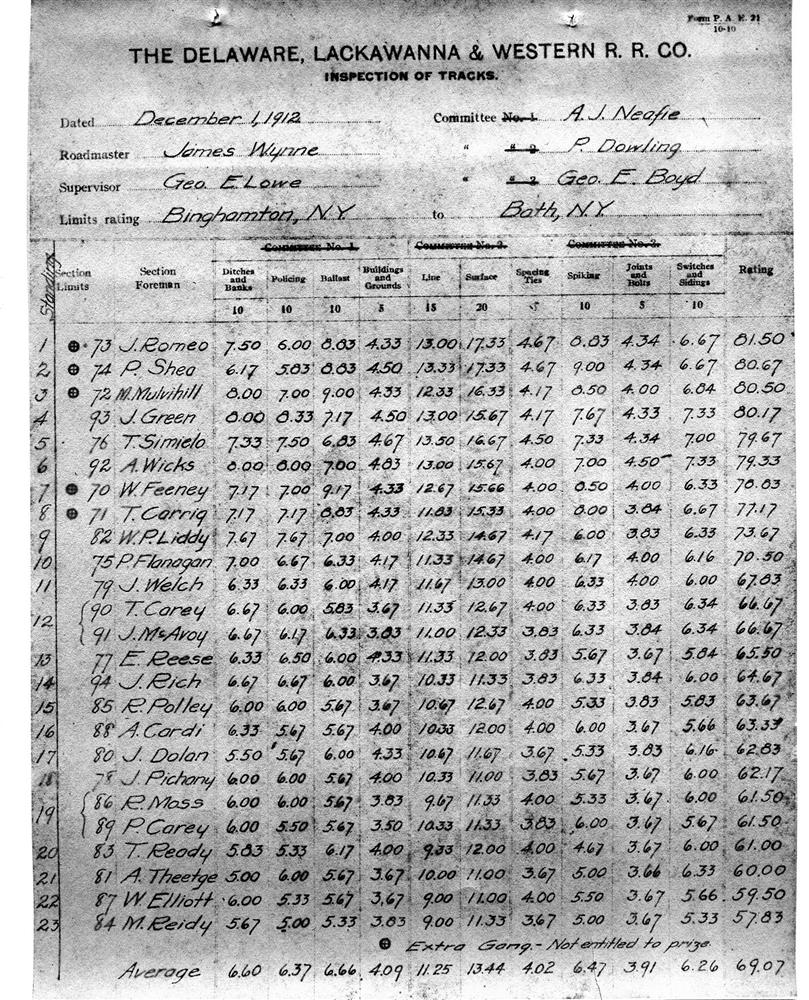 Form P. A. E. 21
10-10
THE DELAWARE, LACKAWANNA & WESTERN R. R. CO.
INSPECTION OF TRACKS.
Dated December 1, 1912 Committee No. 1 A. J. Neafie
Roadmaster James Wynne " " 2 P. Dowling
Supervisor Geo. E. Lowe " " 3 Geo. E. Boyd
Limits rating Binghamton, N.Y. to Bath, N.Y.
Committee No. 1. Committee No. 2. Committee No. 3.
Standing Section Limits Section Foreman Ditches and Banks Policing Ballast Buildings and Grounds Line Surface Spacing Ties Spiking Joints and Bolts Switches and Sidings Rating
10 10 10 5 15 20 5 10 5 10
1 ⊕ 73 J. Romeo 7.50 6.00 8.83 4.33 13.00 17.33 4.67 8.83 4.34 6.67 81.50
2 ⊕ 74 P. Shea 6.17 5.83 8.83 4.50 13.33 17.33 4.67 9.00 4.34 6.67 80.67
3 ⊕ 72 M. Mulvihill 8.00 7.00 9.00 4.33 12.33 16.33 4.17 8.50 4.00 6.84 80.50
4 93 J. Green 8.00 8.33 7.17 4.50 13.00 15.67 4.17 7.67 4.33 7.33 80.17
5 76 T. Simielo 7.33 7.50 6.83 4.67 13.50 16.67 4.50 7.33 4.34 7.00 79.67
6 92 A. Wicks 8.00 8.00 7.00 4.83 13.00 15.67 4.00 7.00 4.50 7.33 79.33
7 ⊕ 70 W. Feeney 7.17 7.00 9.17 4.33 12.67 15.66 4.00 8.50 4.00 6.33 78.83
8 ⊕ 71 T. Carrig 7.17 7.17 8.83 4.33 11.83 15.33 4.00 8.00 3.84 6.67 77.17
9 82 W. P. Liddy 7.67 7.67 7.00 4.00 12.33 14.67 4.17 6.00 3.83 6.33 73.67
10 75 P. Flanagan 7.00 6.67 6.33 4.17 11.33 14.67 4.00 6.17 4.00 6.16 70.50
11 79 J. Welch 6.33 6.33 6.00 4.17 11.67 13.00 4.00 6.33 4.00 6.00 67.83
12 90 T. Carey 6.67 6.00 5.83 3.67 11.33 12.67 4.00 6.33 3.83 6.34 66.67
91 J. McAvoy 6.67 6.17 6.33 3.83 11.00 12.33 3.83 6.33 3.84 6.34 66.67
13 77 E. Reese 6.33 6.50 6.00 4.33 11.33 12.00 3.83 5.67 3.67 5.84 65.50
14 94 J. Rich 6.67 6.67 6.00 3.67 10.33 11.33 3.83 6.33 3.84 6.00 64.67
15 85 R. Polley 6.00 6.00 5.67 3.67 10.67 12.67 4.00 5.33 3.83 5.83 63.67
16 88 A. Cardi 6.33 5.67 5.67 4.00 10.33 12.00 4.00 6.00 3.67 5.66 63.33
17 80 J. Dolan 5.50 5.67 6.00 4.33 10.67 11.67 3.67 5.33 3.83 6.16 62.83
18 78 J. Pichany 6.00 6.00 5.67 4.00 10.33 11.00 3.83 5.67 3.67 6.00 62.17
19 86 R. Mass 6.00 6.00 5.67 3.83 9.67 11.33 4.00 5.33 3.67 6.00 61.50
89 P. Carey 6.00 5.50 5.67 3.50 10.33 11.33 3.83 6.00 3.67 5.67 61.50
20 83 T. Ready 5.83 5.33 6.17 4.00 9.33 12.00 4.00 4.67 3.67 6.00 61.00
21 81 A. Theetge 5.00 6.00 5.67 3.67 10.00 11.00 3.67 5.00 3.66 6.33 60.00
22 87 W. Elliott 6.00 5.33 5.67 3.67 9.00 11.00 4.00 5.50 3.67 5.66 59.50
23 84 M. Reidy 5.67 5.00 5.33 3.83 9.00 11.33 3.67 5.00 3.67 5.33 57.83
⊕ Extra Gang - Not entitled to prize.
Average 6.60 6.37 6.66 4.09 11.25 13.44 4.02 6.47 3.91 6.26 69.07